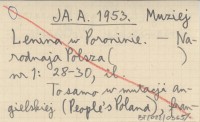 JA. A. 1953. Muziej
Lenina w Poroninie. - Na-
rodnaja Polsza (
nr 1: 28-30, il.
To samo w mutacji an-
gielskiej (People's Poland), fran-